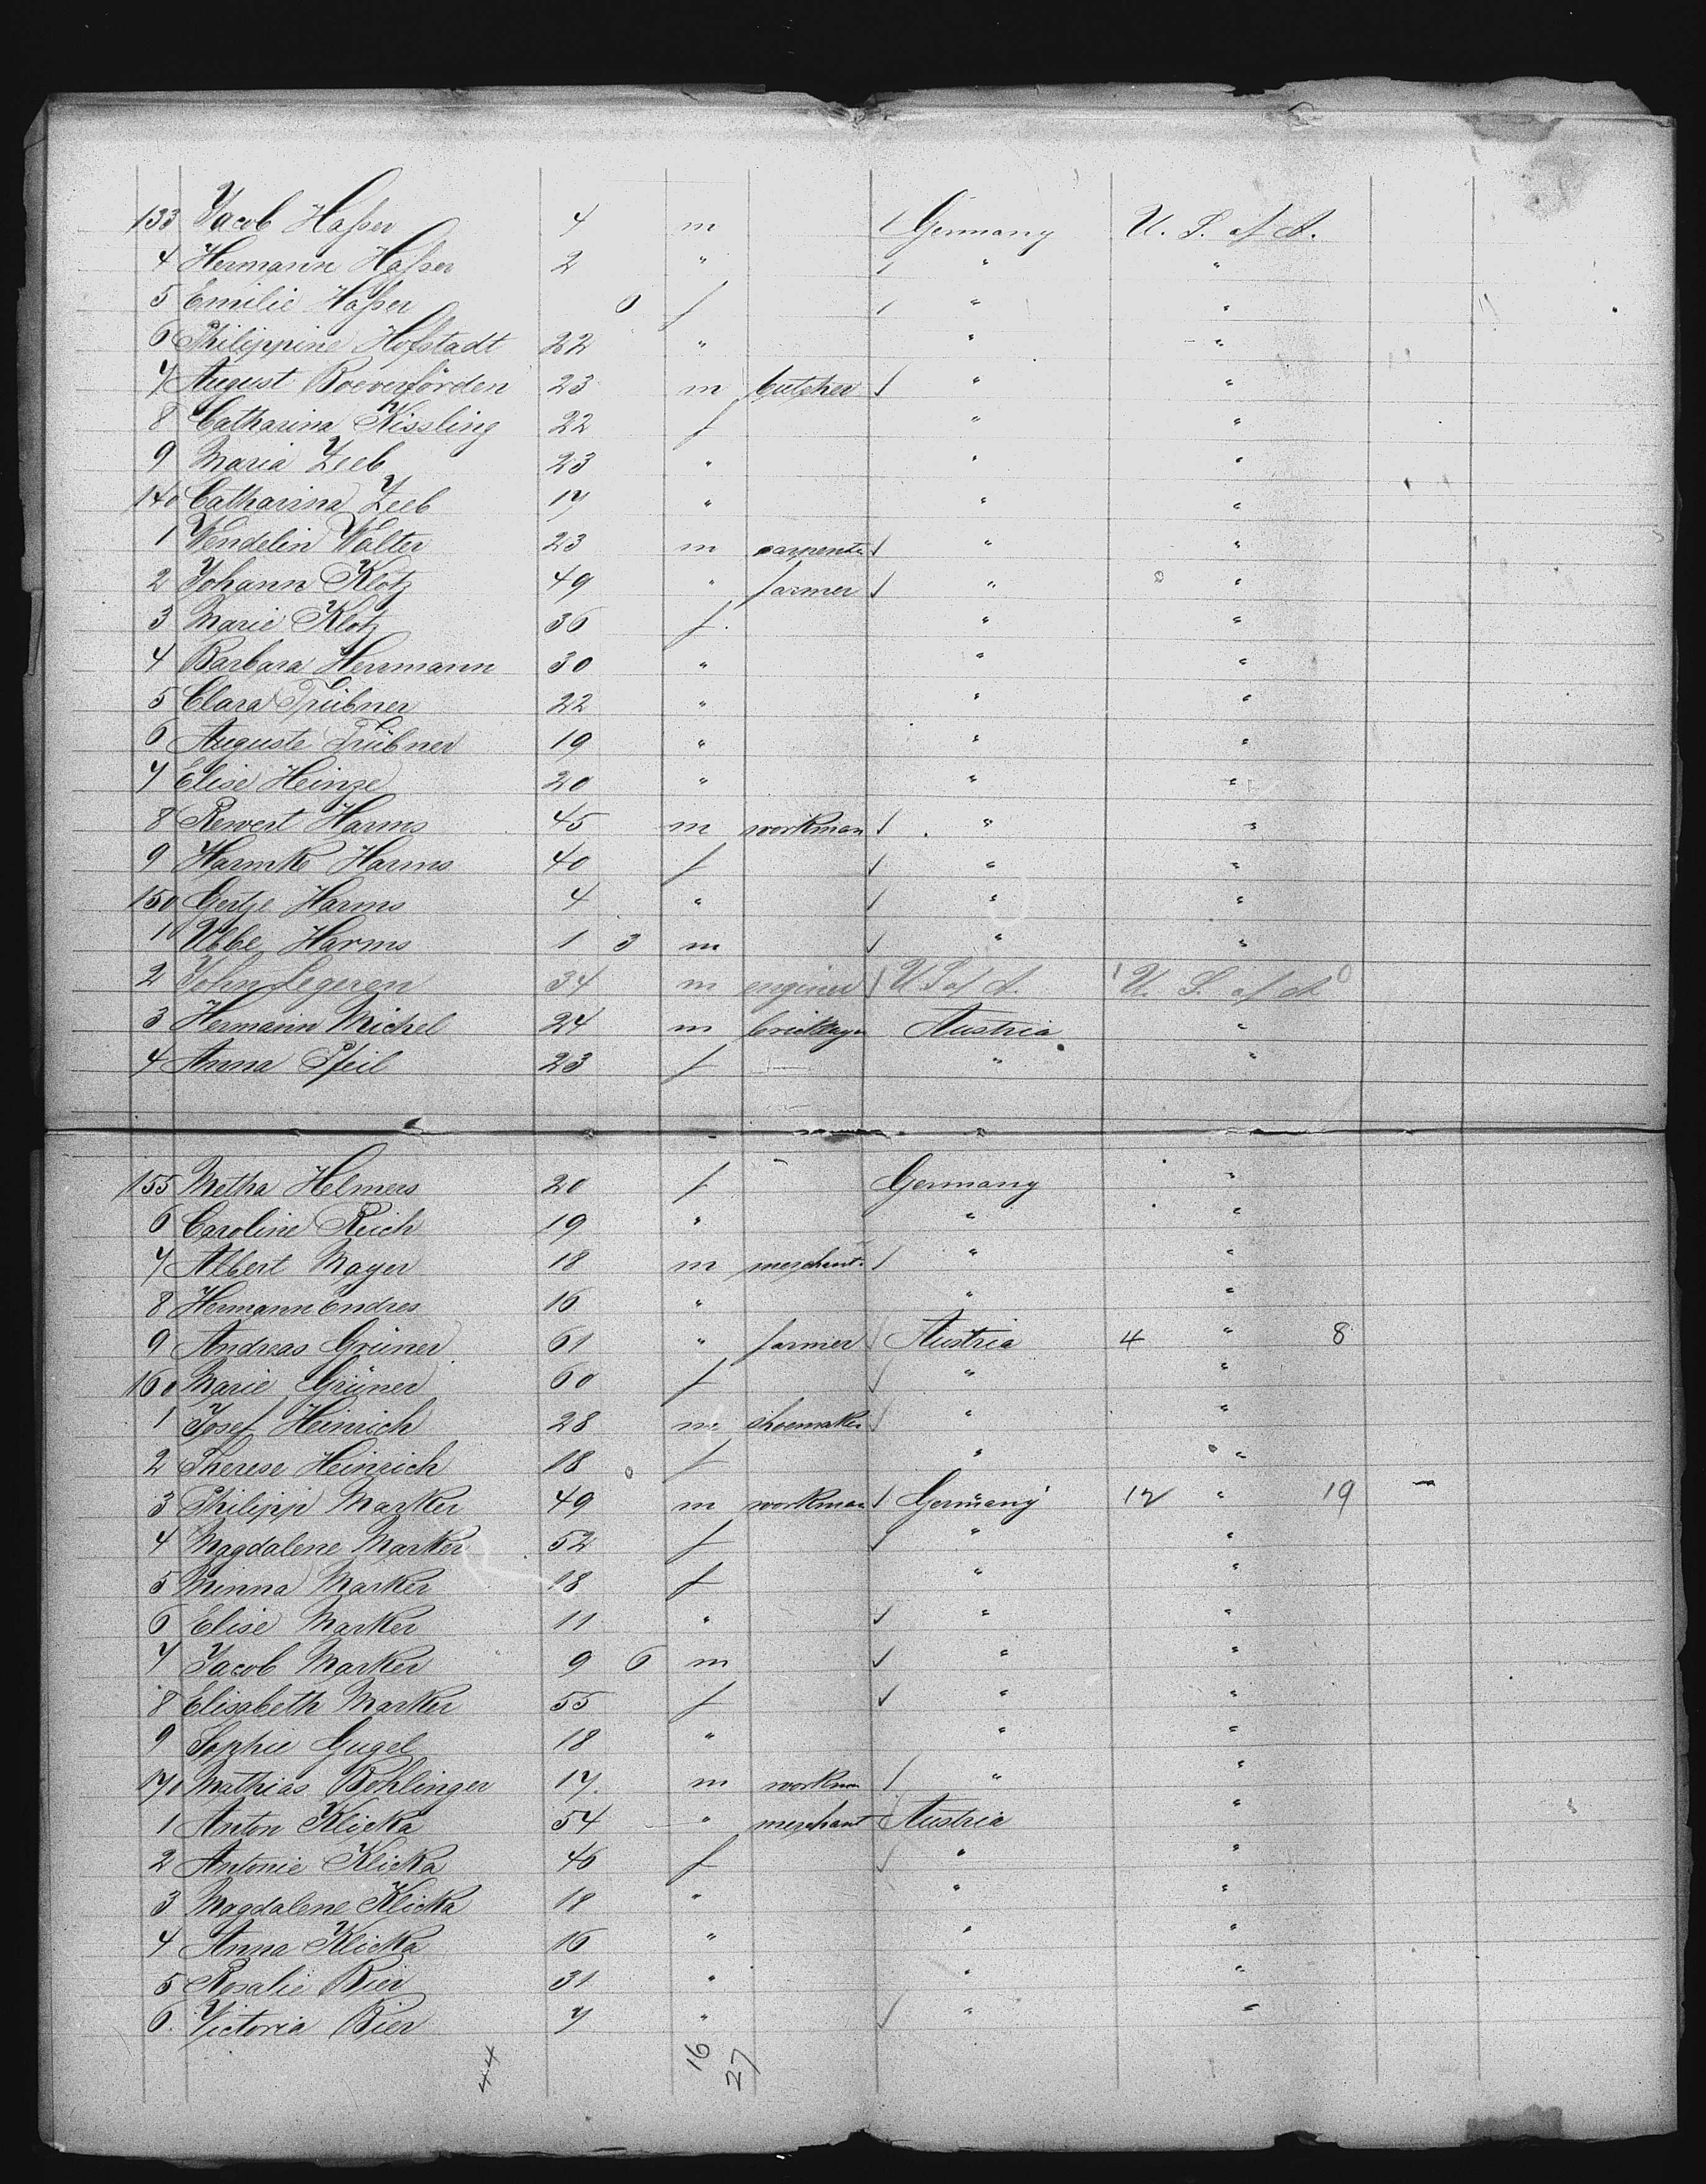 133 Jacob Haßer 4 m / Germany U. S. of A.
4 Hermann Haßer 2 " / " "
5 Emilie Haßer 0 f / " "
6 Philippine Hofstadt 22 " " "
7 August Boevenförden 23 m butcher / " "
8 Catharina Kissling 22 f " "
9 Maria Zeeb 23 " " "
140 Catharina Zeeb 17 " " "
1 Wendelin Walter 23 m carpente / " "
2 Johann Klotz 49 " farmer / " "
3 Marie Klotz 36 f. " "
4 Barbara Herrmann 30 " " "
5 Clara Trübner 22 " " "
6 Auguste Trübner 19 " " "
7 Elise Heinze 20 " " "
8 Rewert Harms 45 m workman / " "
9 Harmke Harms 40 f / " "
150 Gertje Harms 4 " / " "
1 Ubbe Harms 1 3 m / " "
2 John Legeren 34 m engineer / U S of A. U. S. of A
3 Hermann Michel 24 m bricklayer Austria "
4 Anna Pfeil 23 f " "
155 Metha Helmers 20 f Germany "
6 Caroline Reich 19 " " "
7 Albert Mayer 18 m merchant. / " "
8 Hermann Endres 16 " " "
9 Andreas Grüner 61 " farmer / Austria 4 " 8
160 Marie Grüner 60 f / " "
1 Josef Heinrich 28 m shoemaker / " "
2 Therese Heinrich 18 f " "
3 Philipp Marker 49 m workman / Germany 12 " 19
4 Magdalene Marker 52 f / " "
5 Minna Marker 18 f " "
6 Elise Marker 11 " / " "
7 Jacob Marker 9 6 m / " "
8 Elisabeth Marker 55 f / " "
9 Sophie Gugel 18 " " "
170 Mathias Bohlinger 17. m workman / " "
1 Anton Klicka 54 " merchant Austria "
2 Antonie Klicka 46 f / " "
3 Magdalene Klicka 18 " " "
4 Anna Klicka 16 " " "
5 Rosalie Bier 31 " " "
6. Victoria Bier 7 " / " "
44 16 27